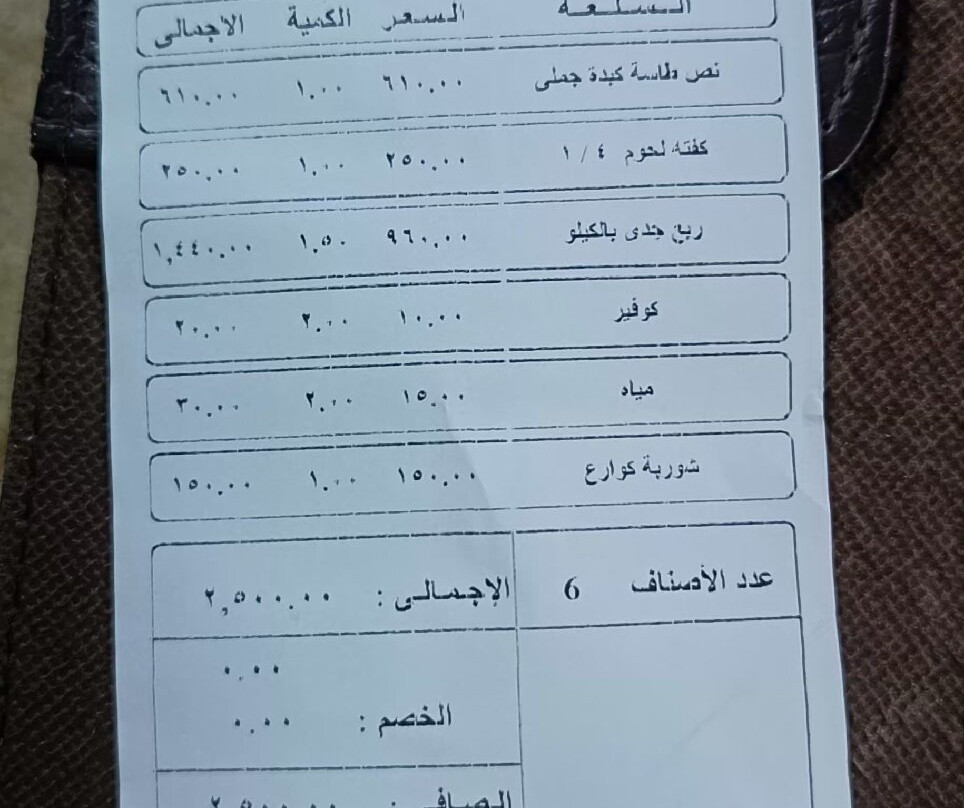 السلعة السعر الكمية الاجمالى
نص طاسة كبدة جملى ٦١٠.٠٠ ١.٠٠ ٦١٠.٠٠
كفته لحوم ٤ / ١ ٢٥٠.٠٠ ١.٠٠ ٢٥٠.٠٠
ربع جدى بالكيلو ٩٦٠.٠٠ ١.٥٠ ١,٤٤٠.٠٠
كوفير ١٠.٠٠ ٢.٠٠ ٢٠.٠٠
مياه ١٥.٠٠ ٢.٠٠ ٣٠.٠٠
شوربة كوارع ١٥٠.٠٠ ١.٠٠ ١٥٠.٠٠
عدد الأصناف 6 الإجمالى : ٢,٥٠٠.٠٠
٠.٠٠
الخصم : ٠.٠٠
الصافى : ٢,٥٠٠.٠٠